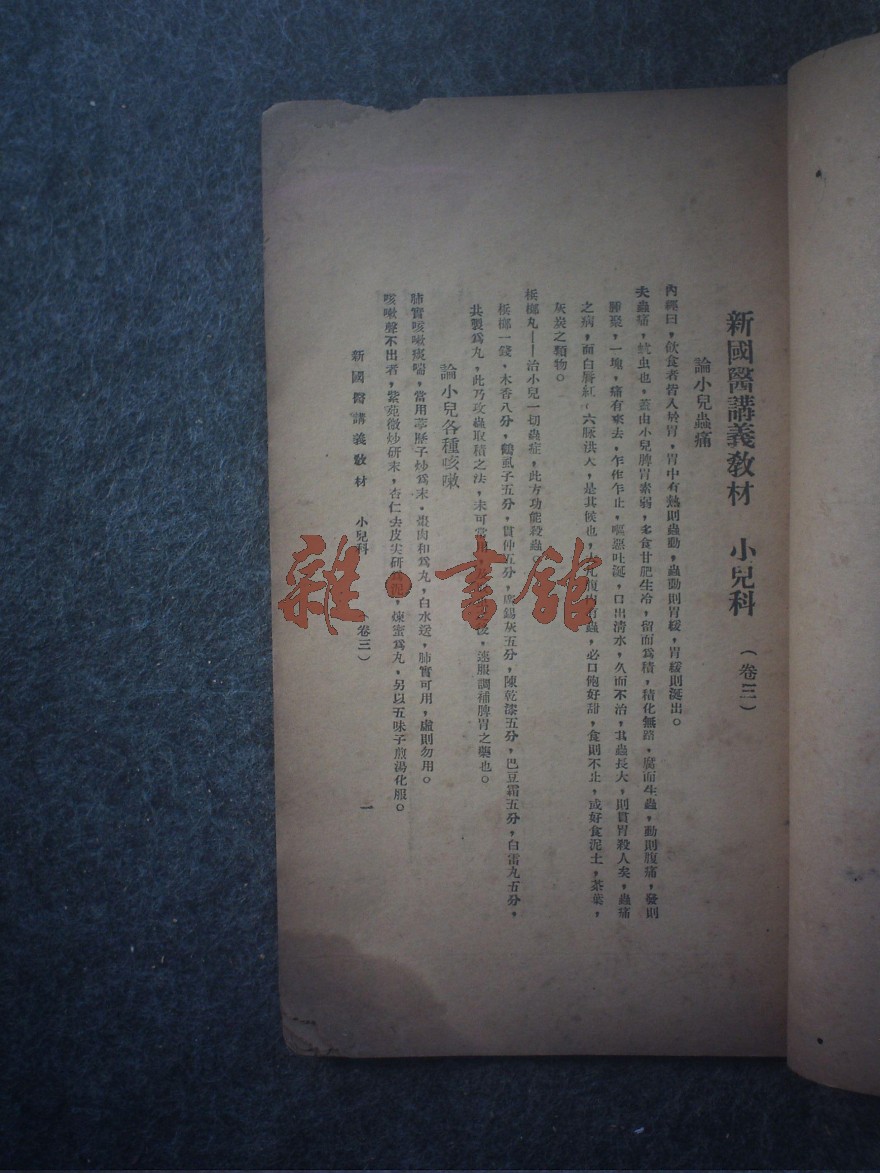 新國醫講義敎材　小兒科　（卷三）
論小兒蟲痛
內經曰，飲食者皆入於胃，胃中有熱則蟲動，蟲動則胃緩，胃緩則涎出。
夫蟲痛，蚘虫也，蓋由小兒脾胃素弱，多食甘肥生冷，留而爲積，積化無踏，腐而生蟲，動則腹痛，發則
腫聚，一塊，痛有來去，乍作乍止，嘔惡吐涎，口出清水，久而不治，其蟲長大，則貫胃殺人矣，蟲痛
之病，面白唇紅，六脉洪大，是其候也，腹內有蟲，必口饱好甜，食則不止，或好食泥土，茶葉，
灰炭之類物。
梹榔丸——治小兒一切蟲症，此方功能殺蟲。
梹榔一錢，木香八分，鶴虱子五分，貫仲五分，錫灰五分，陳乾漆五分，巴豆霜五分，白雷丸五分，
共製爲丸，此乃攻蟲取積之法，未可常用，後，速服調補脾胃之藥也。
論小兒各種咳嗽
肺實咳嗽痰喘，當用葶歷子炒爲末，棗肉和爲丸，白水送，肺實可用，虛則勿用。
咳嗽聲不出者，紫苑微炒研末，杏仁去皮尖研爲泥，煉蜜爲丸，另以五味子煎湯化服。
新國醫講義敎材　小兒科　（卷三）　一
雜·書館